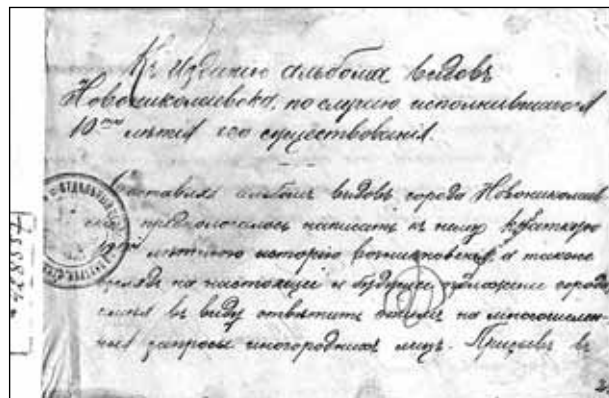 Къ изданію альбома видовъ
Новониколаевска, по случаю исполнившагося
10ти лѣтія его существованія.
Составляя альбомъ видовъ города Новониколаев
предполагалось написать къ нему краткую
лѣтнюю исторію возникновенія, а также
взглядъ на настоящее и будущее положеніе города,
имѣя въ виду отвѣтить на многочислен-
ные запросы иногороднихъ лицъ. Присемъ въ